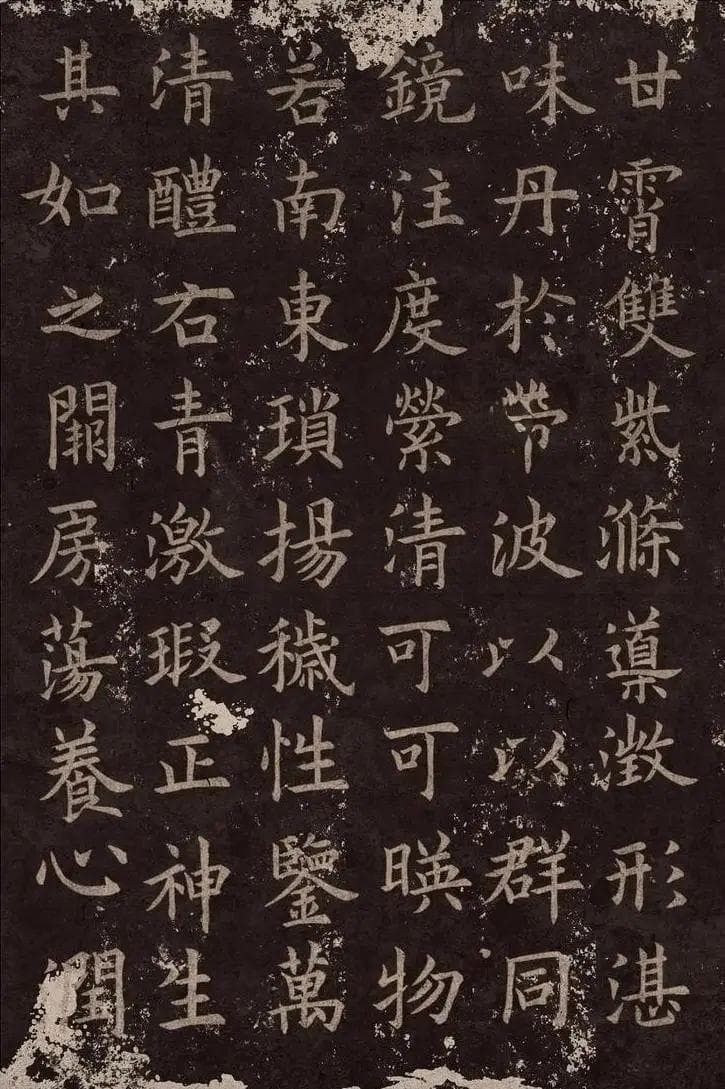 其清若鏡味甘
如醴南注丹霄
之右東度於雙
闕青瑣縈帶紫
房激揚清波滌
蕩瑕穢可以導
養正性可以澂
心神鑒暎群形
潤生萬物同湛